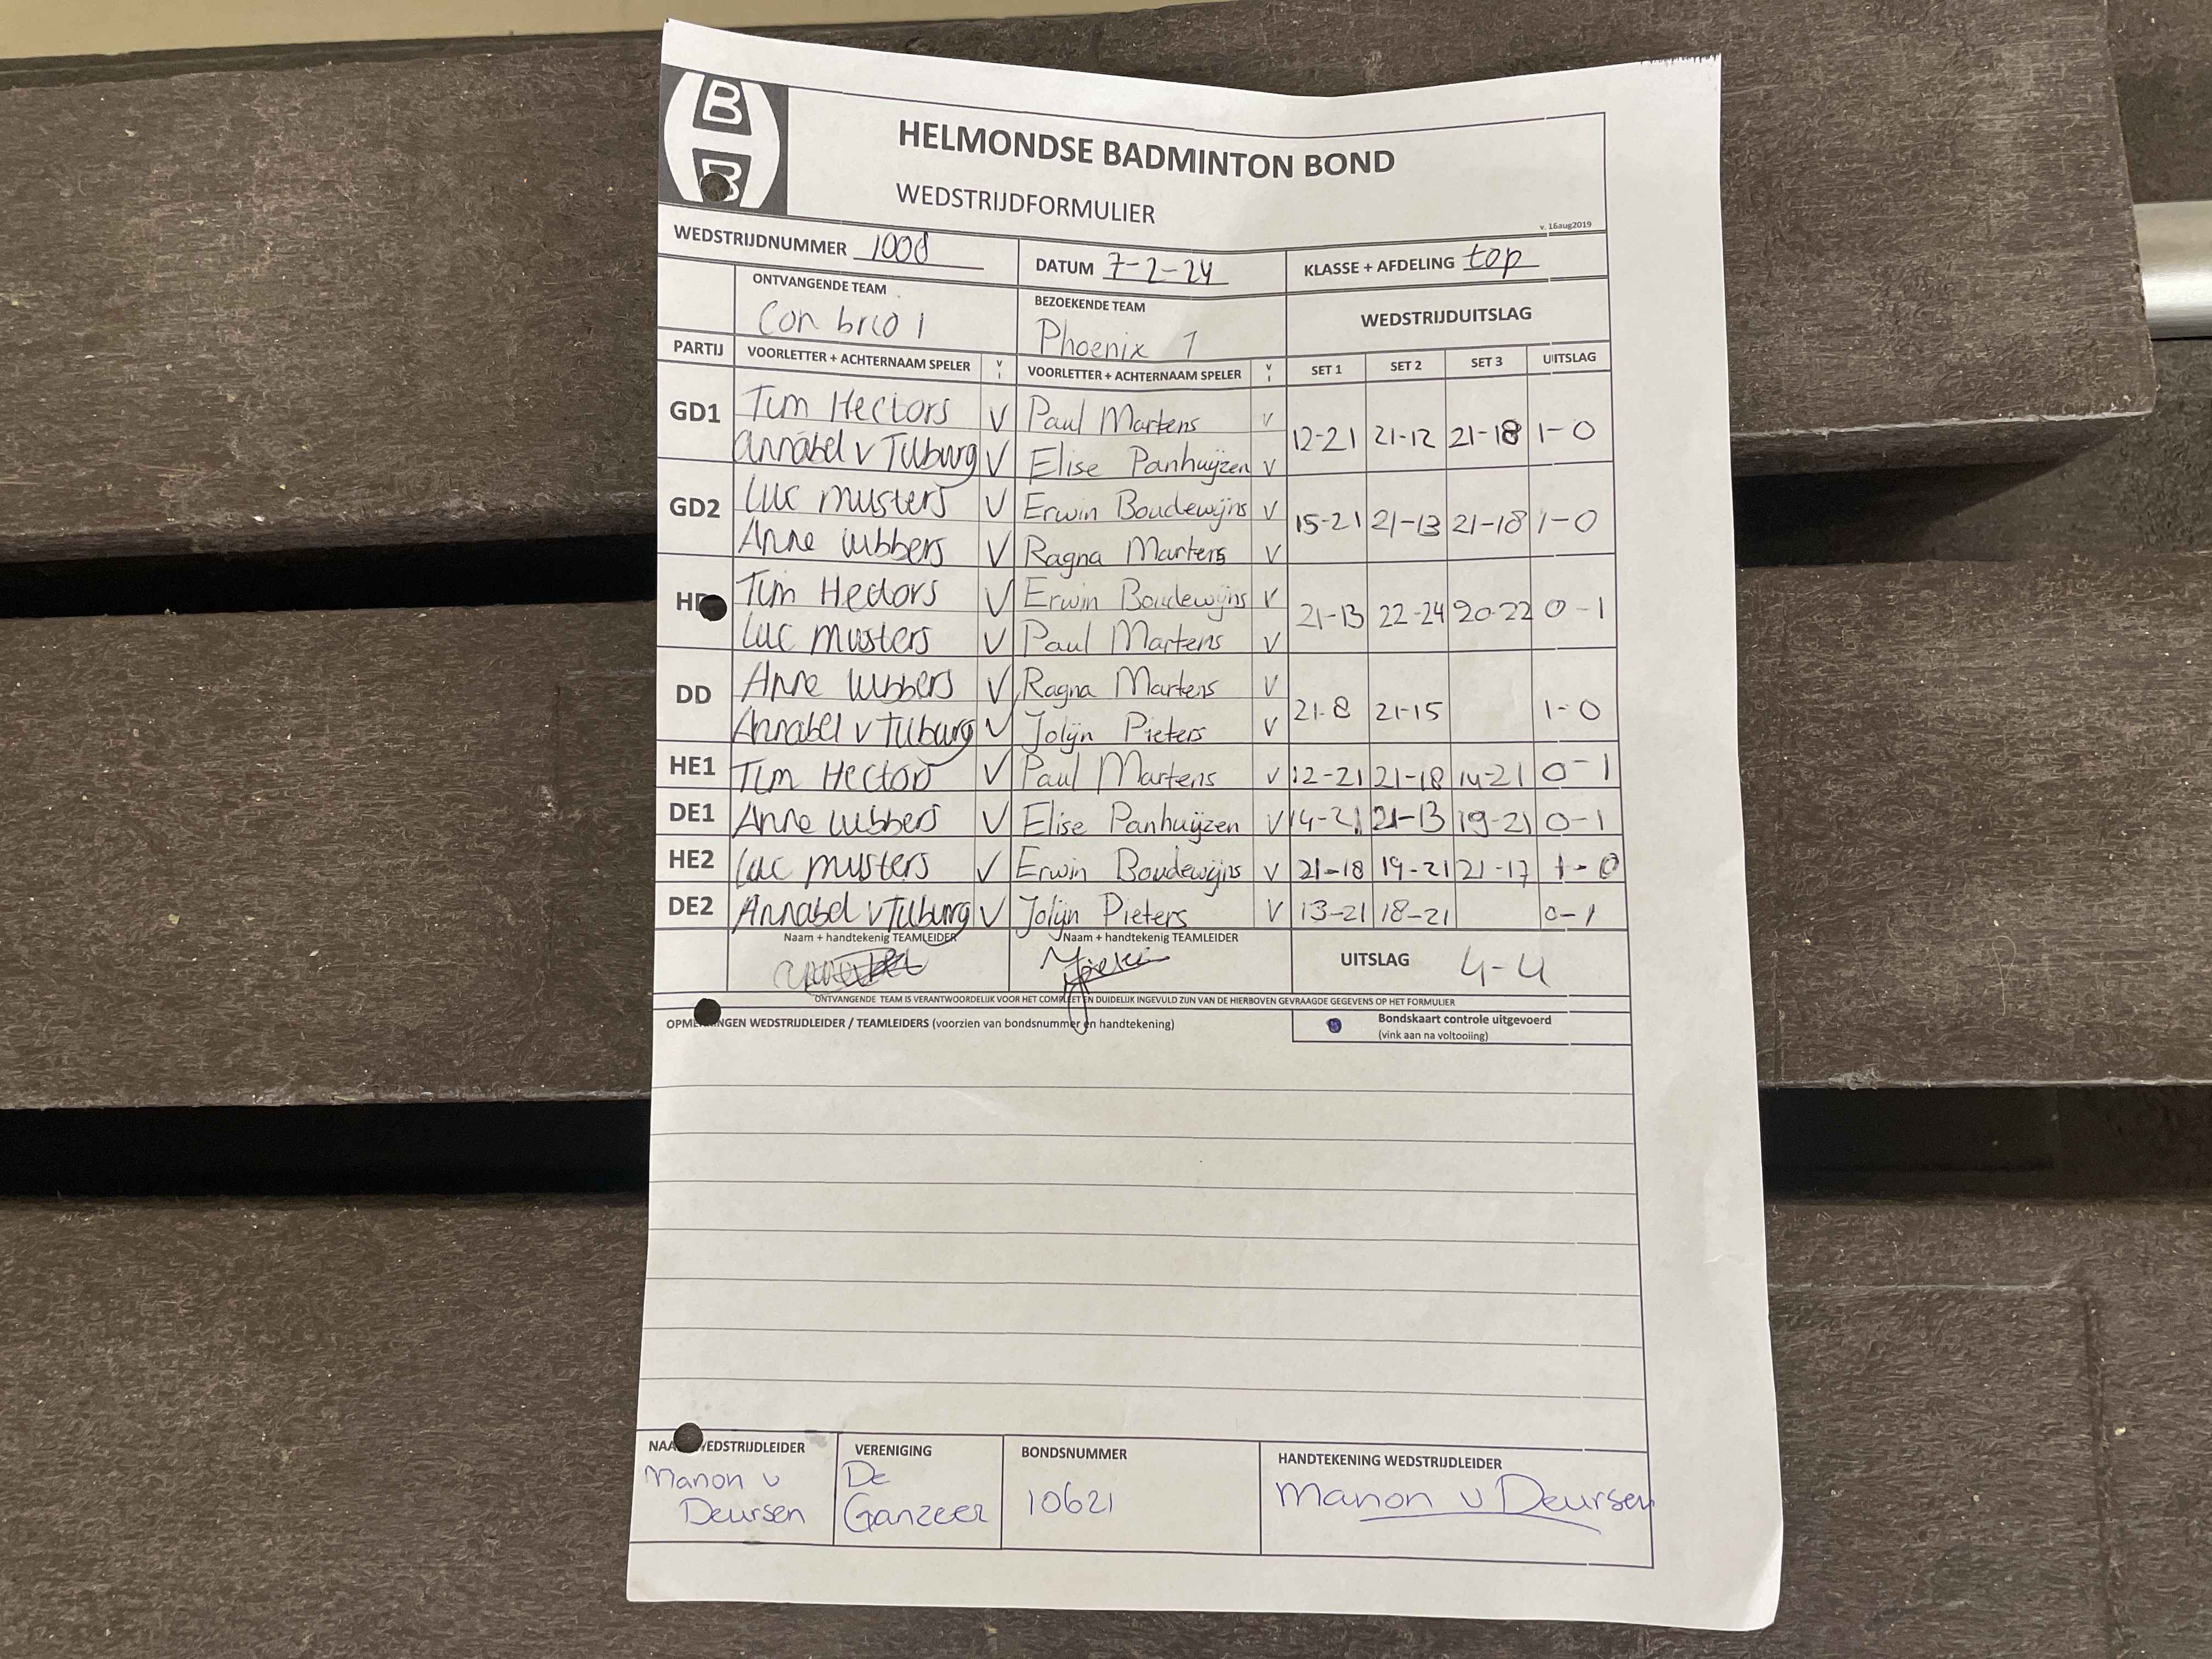 B
B
HELMONDSE BADMINTON BOND
WEDSTRIJDFORMULIER
v. 16aug2019
WEDSTRIJDNUMMER 1008 DATUM 7-2-24 KLASSE + AFDELING top
ONTVANGENDE TEAM BEZOEKENDE TEAM WEDSTRIJDUITSLAG
Con brio 1 Phoenix 1
PARTIJ VOORLETTER + ACHTERNAAM SPELER V I VOORLETTER + ACHTERNAAM SPELER V I SET 1 SET 2 SET 3 UITSLAG
GD1 Tim Hectors V Paul Martens V 12-21 21-12 21-18 1-0
Annabel v Tilburg V Elise Panhuijzen V
GD2 Luc Musters V Erwin Boudewijns V 15-21 21-13 21-18 1-0
Anne Lubbers V Ragna Martens V
Tim Hectors V Erwin Boudewijns V 21-13 22-24 20-22 0-1
Luc Musters V Paul Martens V
DD Anne Lubbers V Ragna Martens V 21-8 21-15 1-0
Annabel v Tilburg V Jolijn Pieters V
HE1 Tim Hectors V Paul Martens V 12-21 21-18 14-21 0-1
DE1 Anne Lubbers V Elise Panhuijzen V 14-21 21-13 19-21 0-1
HE2 Luc Musters V Erwin Boudewijns V 21-18 19-21 21-17 1-0
DE2 Annabel v Tilburg V Jolijn Pieters V 13-21 18-21 0-1
Naam + handtekenig TEAMLEIDER Naam + handtekenig TEAMLEIDER UITSLAG 4-4
ONTVANGENDE TEAM IS VERANTWOORDELIJK VOOR HET COMPLEET EN DUIDELIJK INGEVULD ZIJN VAN DE HIERBOVEN GEVRAAGDE GEGEVENS OP HET FORMULIER
WEDSTRIJDLEIDER / TEAMLEIDERS (voorzien van bondsnummer en handtekening) Bondskaart controle uitgevoerd
(vink aan na voltooiing)
WEDSTRIJDLEIDER VERENIGING BONDSNUMMER HANDTEKENING WEDSTRIJDLEIDER
Manon v De 10621 Manon v Deursen
Deursen Ganzeer